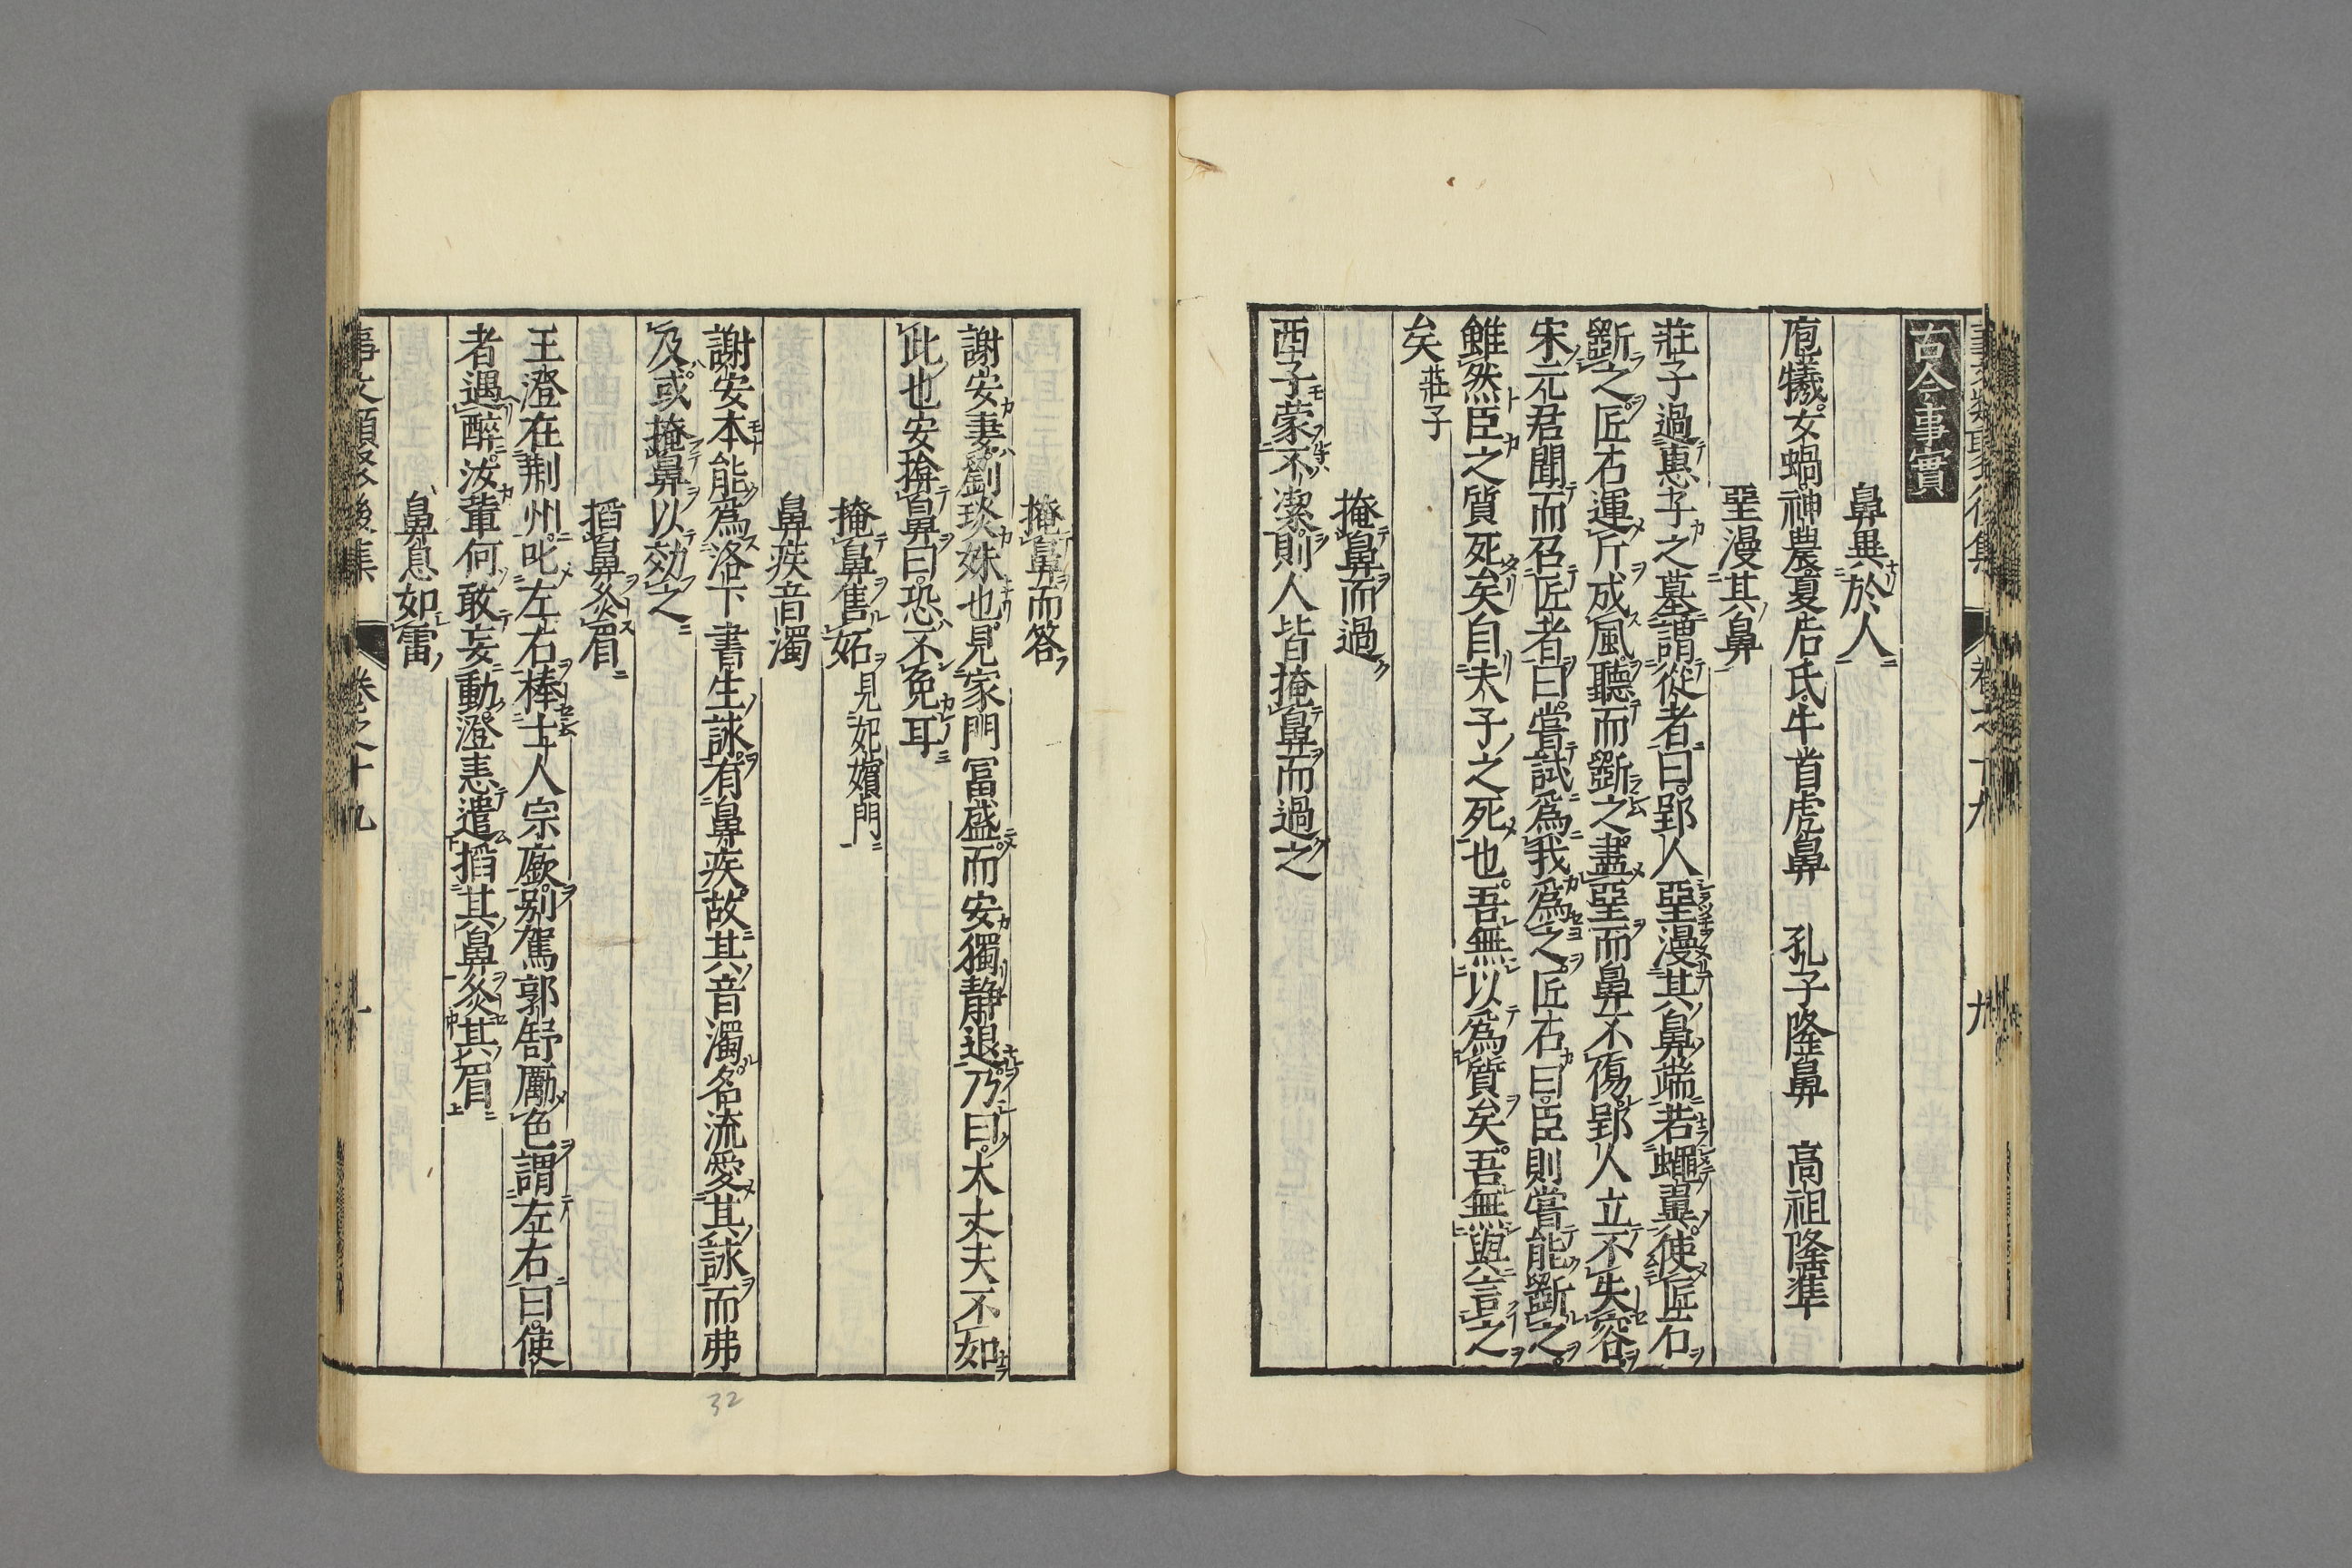 古今事實
鼻異於人
庖犧女蝸神農夏后氏牛首虎鼻　孔子隆鼻　高祖隆準
堊漫其鼻
莊子過惠子之墓謂從者曰郢人堊漫其鼻端若蠅翼使匠石
斲之匠石運斤成風聽而斲之盡堊而鼻不傷郢人立不失容
宋元君聞而召匠者曰嘗試爲我爲之匠石曰臣則嘗能斲之
雖然臣之質死矣自夫子之死也吾無以爲質矣吾無與言之
矣莊子
掩鼻而過
西子蒙不潔則人皆掩鼻而過之
掩鼻而答
謝安妻劉琰妹也見家門富盛而安獨靜退乃曰大丈夫不如
此也安掩鼻曰恐不免耳
掩鼻售妬見妃嬪門
鼻疾音濁
謝安本能爲洛下書生詠有鼻疾故其音濁名流愛其詠而弗
及或掩鼻以効之
搯鼻灸眉
王澄在荆州叱左右棒士人宗廞別駕郭舒厲色謂左右曰使
者過醉汝輩何敢妄動澄恚遣搯其鼻灸其眉
鼻息如雷
事文類聚後集　卷之十九